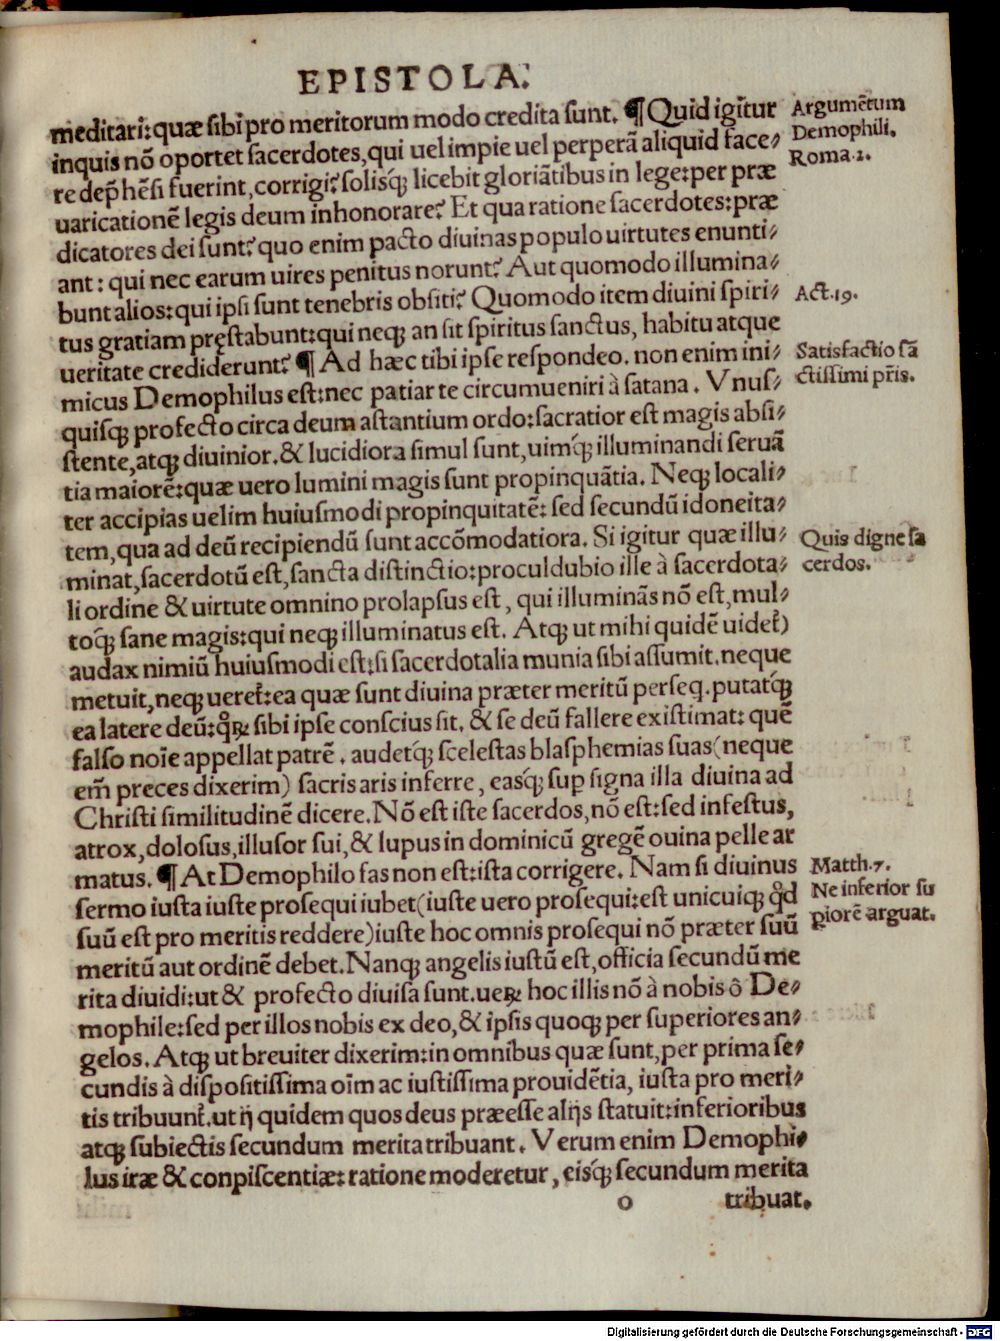 EPISTOLA.
meditari: quæ sibi pro meritorum modo credita sunt. ¶ Quid igitur
inquis nō oportet sacerdotes, qui uel impie uel perperā aliquid face-
re dep̄hēsi fuerint, corrigi? solisq; licebit gloriātibus in lege: per præ
uaricationē legis deum inhonorare? Et qua ratione sacerdotes: præ
dicatores dei sunt? quo enim pacto diuinas populo uirtutes enunti-
ant: qui nec earum uires penitus norunt? Aut quomodo illumina-
bunt alios: qui ipsi sunt tenebris obsiti? Quomodo item diuini spiri-
tus gratiam pręstabunt: qui neq; an sit spiritus sanctus, habitu atque
ueritate crediderunt? ¶ Ad hæc tibi ipse respondeo. non enim ini-
micus Demophilus est: nec patiar te circumueniri à satana. Vnus-
quisq; profecto circa deum astantium ordo: sacratior est magis absi-
stente, atq; diuinior. & lucidiora simul sunt, uimq́; illuminandi seruā
tia maiorē: quæ uero lumini magis sunt propinquātia. Neq; locali-
ter accipias uelim huiusmodi propinquitatē: sed secundū idoneita-
tem, qua ad deū recipiendū sunt accōmodatiora. Si igitur quæ illu-
minat, sacerdotū est, sancta distinctio: proculdubio ille à sacerdota-
li ordine & uirtute omnino prolapsus est, qui illuminās nō est, mul-
toq́; sane magis: qui neq; illuminatus est. Atq; ut mihi quidē uidet᷑)
audax nimiū huiusmodi est: si sacerdotalia munia sibi assumit. neque
metuit, neq; ueret᷑: ea quæ sunt diuina præter meritū perseq. putatq́;
ea latere deū: qꝛ̄ sibi ipse conscius sit, & se deū fallere existimat: quē
falso noīe appellat patrē. audetq́; scelestas blasphemias suas (neque
em̄ preces dixerim) sacris aris inferre, easq́; sup signa illa diuina ad
Christi similitudinē dicere. Nō est iste sacerdos, nō est: sed infestus,
atrox, dolosus, illusor sui, & lupus in dominicū gregē ouina pelle ar
matus. ¶ At Demophilo fas non est: ista corrigere. Nam si diuinus
sermo iusta iuste prosequi iubet (iuste uero prosequi: est unicuiq; qd̄
suū est pro meritis reddere) iuste hoc omnis prosequi nō præter suū
meritū aut ordinē debet. Nanq; angelis iustū est, officia secundū me
rita diuidi: ut & profecto diuisa sunt. ueꝝ hoc illis nō à nobis ô De-
mophile: sed per illos nobis ex deo, & ipsis quoq; per superiores an-
gelos. Atq; ut breuiter dixerim: in omnibus quæ sunt, per prima se-
cundis à dispositissima oīm ac iustissima prouidētia, iusta pro meri-
tis tribuunt᷑. ut ij quidem quos deus præesse alijs statuit: inferioribus
atq; subiectis secundum merita tribuant. Verum enim Demophi-
lus iræ & conpiscentiæ: ratione moderetur, eisq́; secundum merita
o tribuat.
Argumētum
Demophili.
Roma.2.
Act.19.
Satisfactio sā
ctissimi pr̄is.
Quis digne sa
cerdos.
Matth.7.
Ne inferior su
piorē arguat.
Digitalisierung gefördert durch die Deutsche Forschungsgemeinschaft - DFG